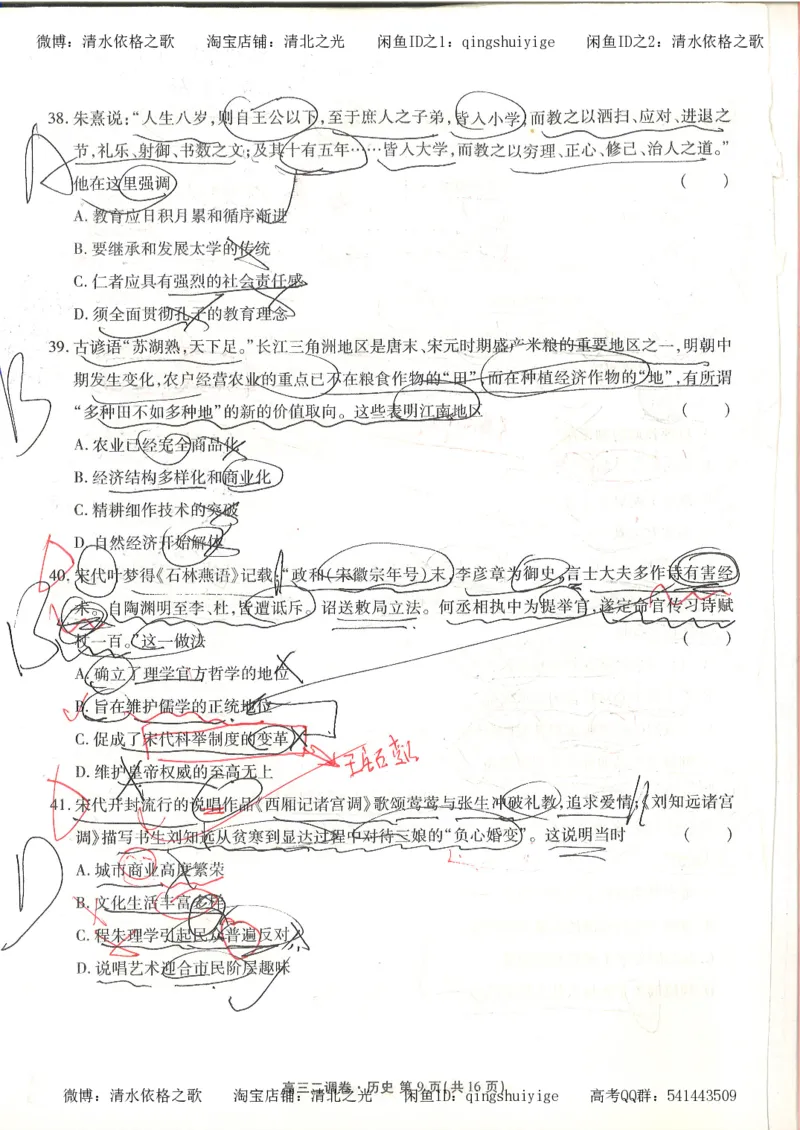 微博：清水依格之歌 淘宝店铺：清北之光 闲鱼ID之1：qingshuiyige 闲鱼ID之2：清水依格之歌
38. 朱熹说：“人生八岁，则自王公以下，至于庶人之子弟，皆入小学，而教之以洒扫、应对、进退之
节，礼乐、射御、书数之文；及其十有五年……皆入大学，而教之以穷理、正心、修己、治人之道。”
A 他在这里强调 （ ）
A. 教育应日积月累和循序渐进
B. 要继承和发展太学的传统
C. 仁者应具有强烈的社会责任感
D. 须全面贯彻孔子的教育理念
39. 古谚语“苏湖熟，天下足。”长江三角洲地区是唐末、宋元时期盛产米粮的重要地区之一，明朝中
期发生变化，农户经营农业的重点已不在粮食作物的“田”，而在种植经济作物的“地”，有所谓
B “多种田不如多种地”的新的价值取向。这些表明江南地区 （ ）
A. 农业已经完全商品化
B. 经济结构多样化和商业化
C. 精耕细作技术的突破
D. 自然经济开始解体
D 40. 宋代叶梦得《石林燕语》记载：“政和（宋徽宗年号）末，李彦章为御史，言士大夫多作诗有害经
术。自陶渊明至李、杜，皆遭诋斥。诏送敕局立法。何丞相执中为提举官，遂定命官传习诗赋
B 杖一百。”这一做法 （ ）
A. 确立了理学官方哲学的地位
B. 旨在维护儒学的正统地位
C. 促成了宋代科举制度的变革
D. 维护皇帝权威的至高无上
D 41. 宋代开封流行的说唱作品《西厢记诸宫调》歌颂莺莺与张生冲破礼教，追求爱情；《刘知远诸宫
调》描写书生刘知远从贫寒到显达过程中对待三娘的“负心婚变”。这说明当时 （ ）
D A. 城市商业高度繁荣
B. 文化生活丰富多样
C. 程朱理学引起民众普遍反对
D. 说唱艺术迎合市民阶层趣味
高三二调卷·历史 第 9 页（共 16 页）
微博：清水依格之歌 淘宝店铺：清北之光 闲鱼ID：qingshuiyige 高考QQ群：541443509